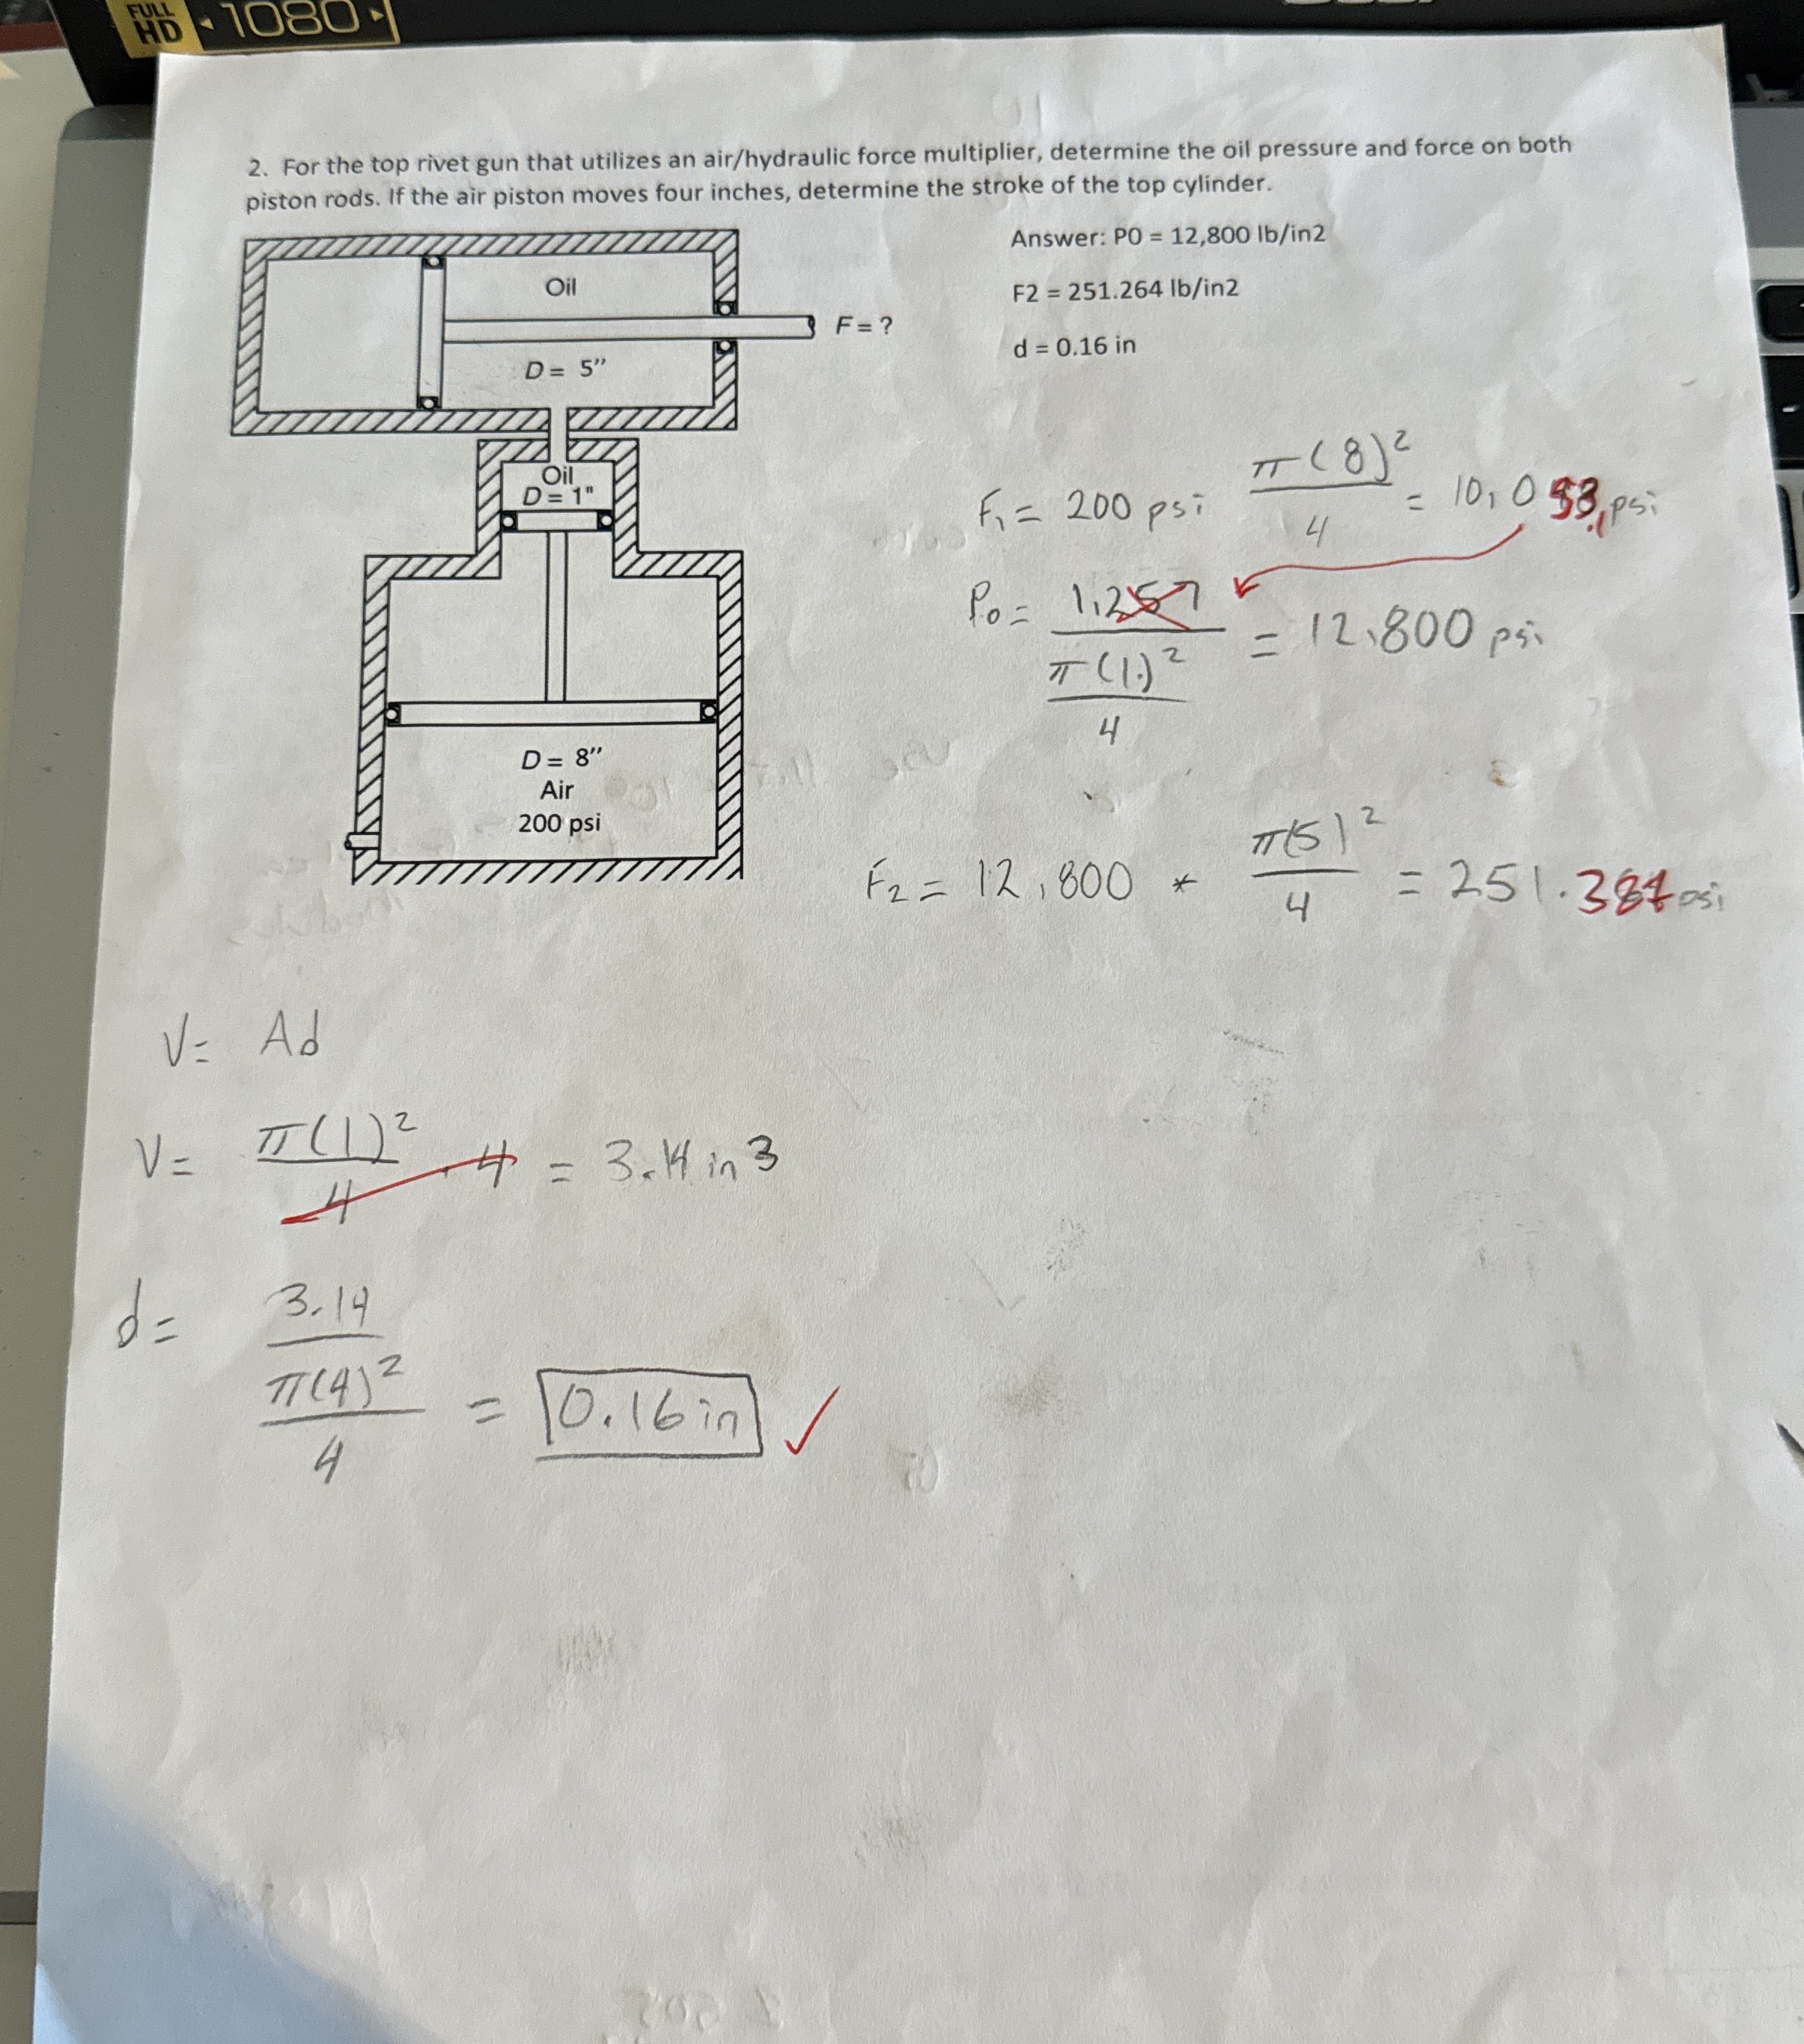 FULL HD 1080
2. For the top rivet gun that utilizes an air/hydraulic force multiplier, determine the oil pressure and force on both
piston rods. If the air piston moves four inches, determine the stroke of the top cylinder.
Answer: P0 = 12,800 lb/in2
F2 = 251.264 lb/in2
d = 0.16 in
Oil
F = ?
D = 5"
Oil
D = 1"
D = 8"
Air
200 psi
F₁ = 200 psi π(8)²/4 = 10,053.1 psi
P₀ = 1,257 / π(1)²/4 = 12,800 psi
F₂ = 12,800 * π(5)²/4 = 251.384 psi
V = Ad
V = π(1)²/4 · 4 = 3.14 in3
d = 3.14 / π(4)²/4 = 0.16 in ✓